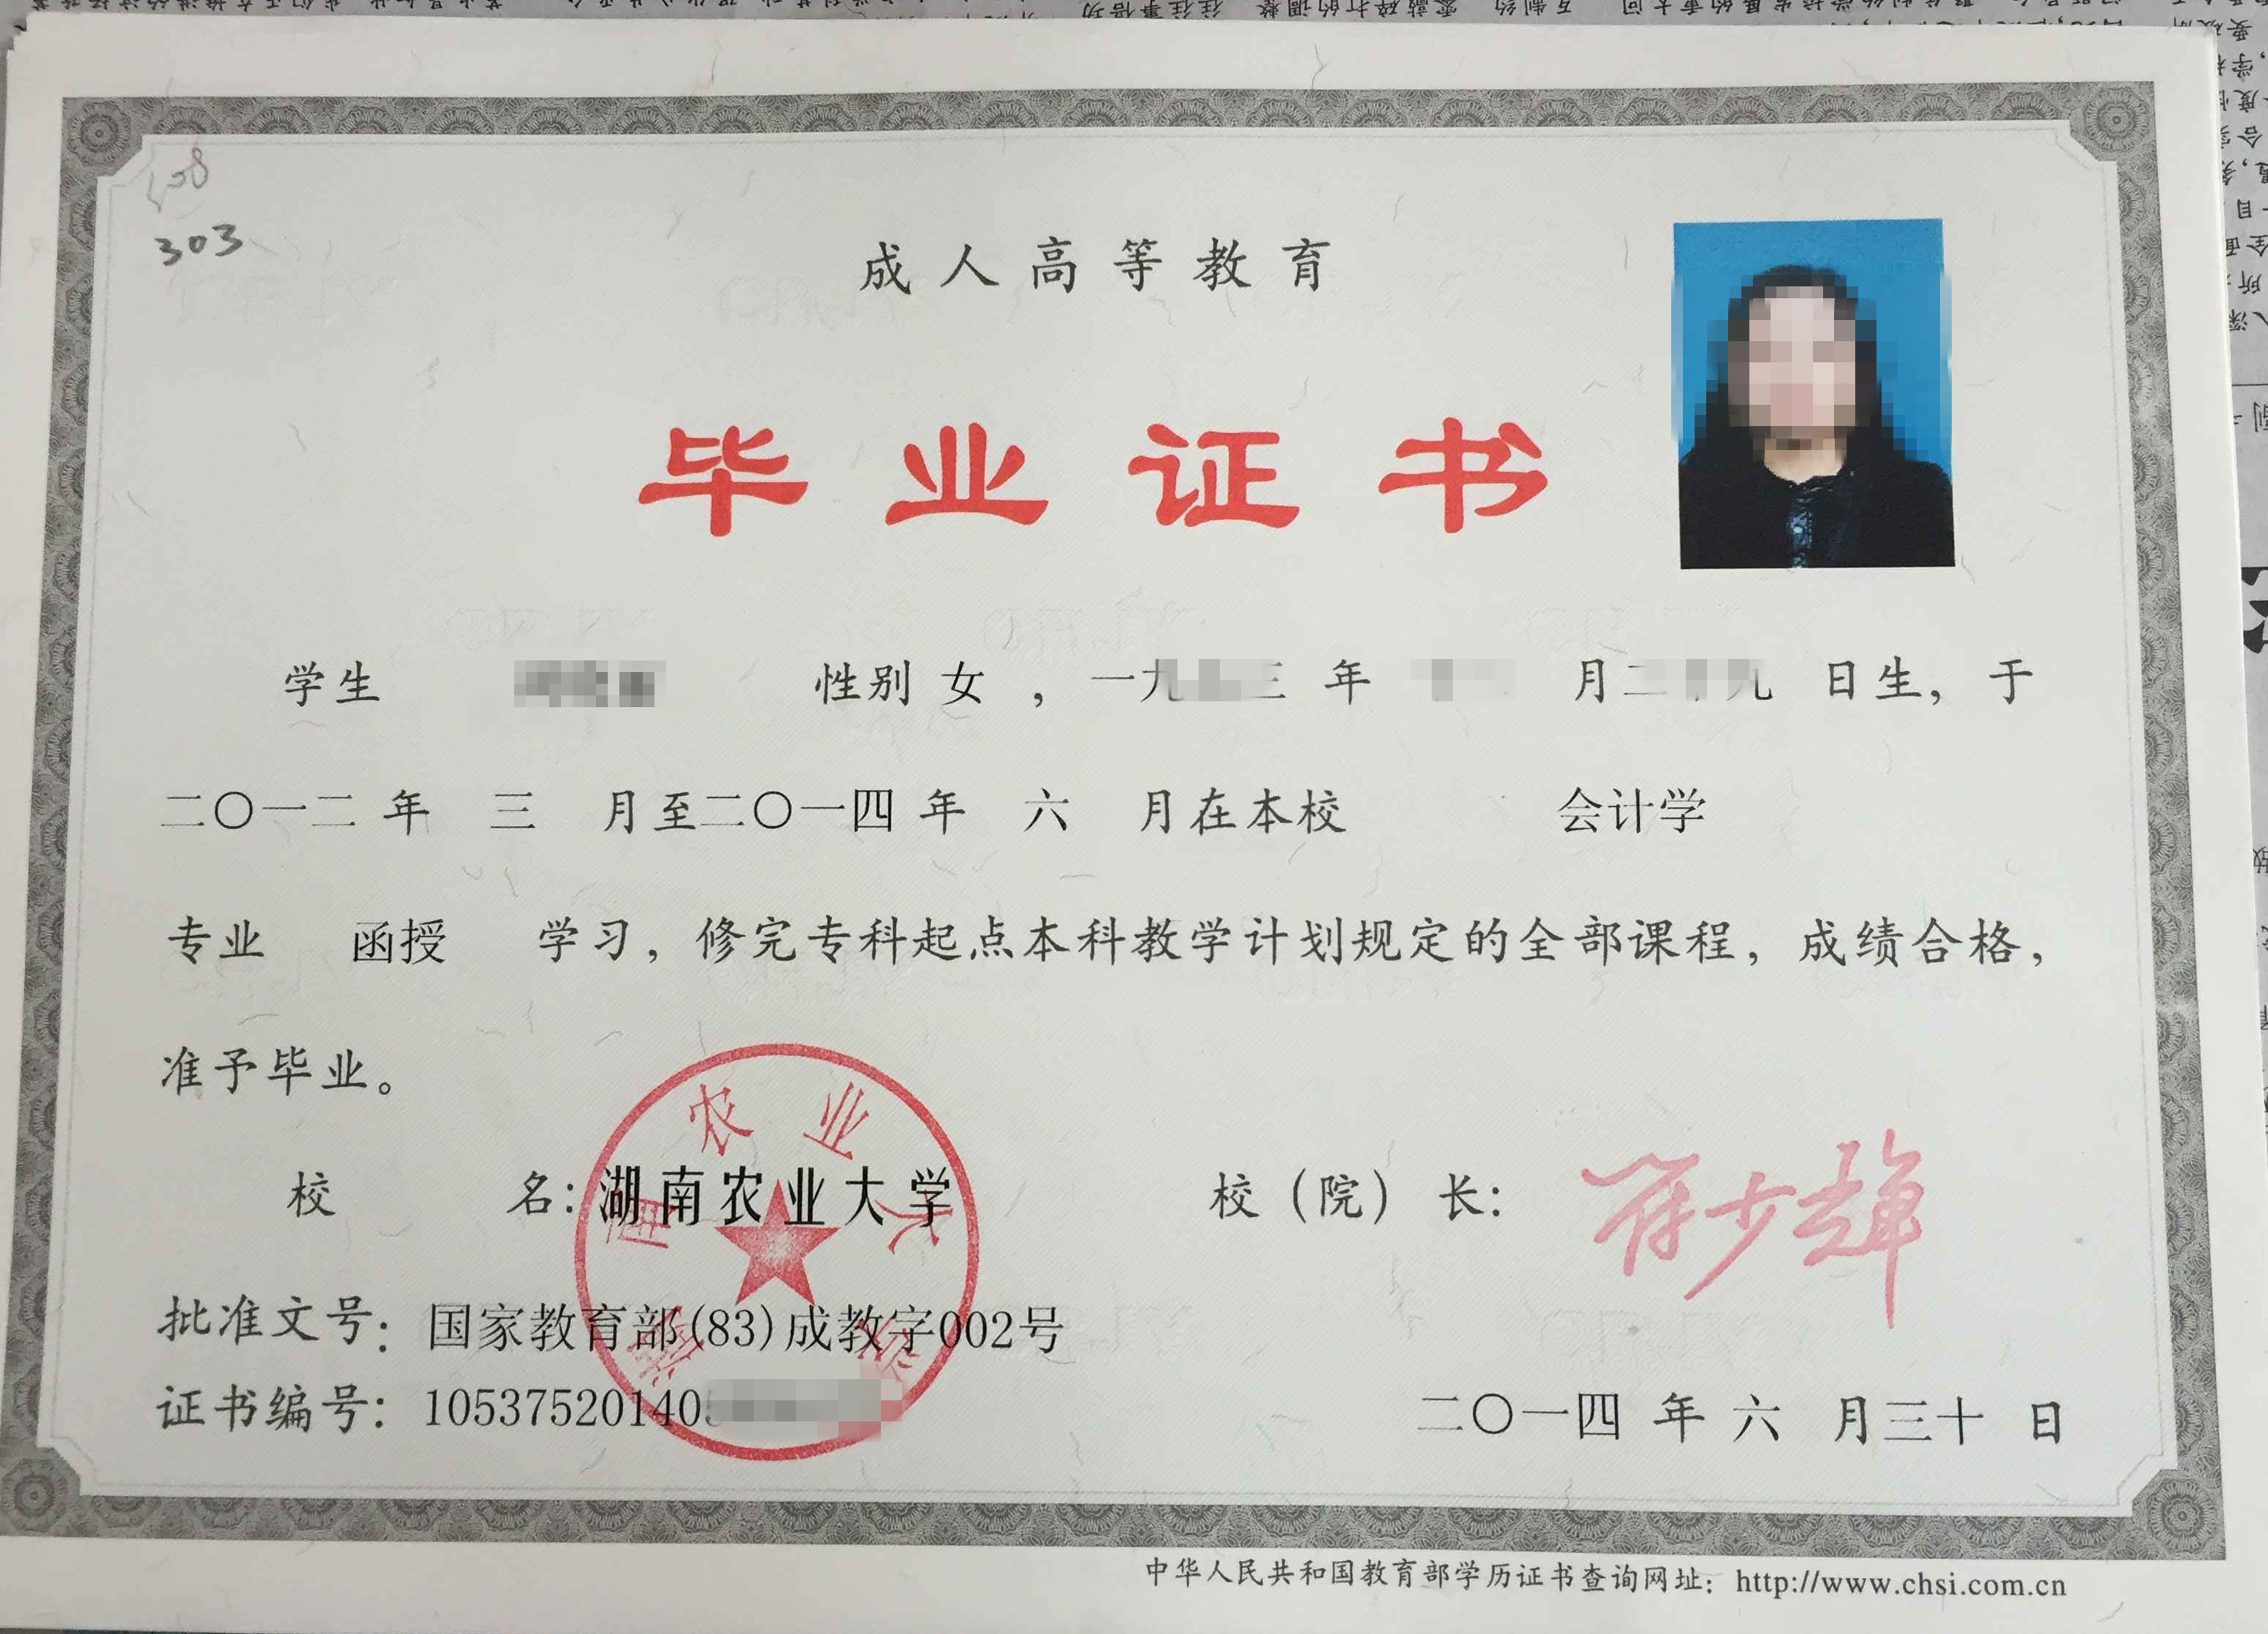 303
成人高等教育
毕业证书
学生 性别 女 ，一九 三 年 月二十九 日生，于
二〇一二 年 三 月至二〇一四 年 六 月在本校 会计学
专业 函授 学习，修完专科起点本科教学计划规定的全部课程，成绩合格，
准予毕业。
校 名：湖南农业大学 校（院）长：
湖南农业大学
批准文号：国家教育部(83)成教字002号
证书编号：105375201405
二〇一四 年 六 月三十 日
中华人民共和国教育部学历证书查询网址：http://www.chsi.com.cn